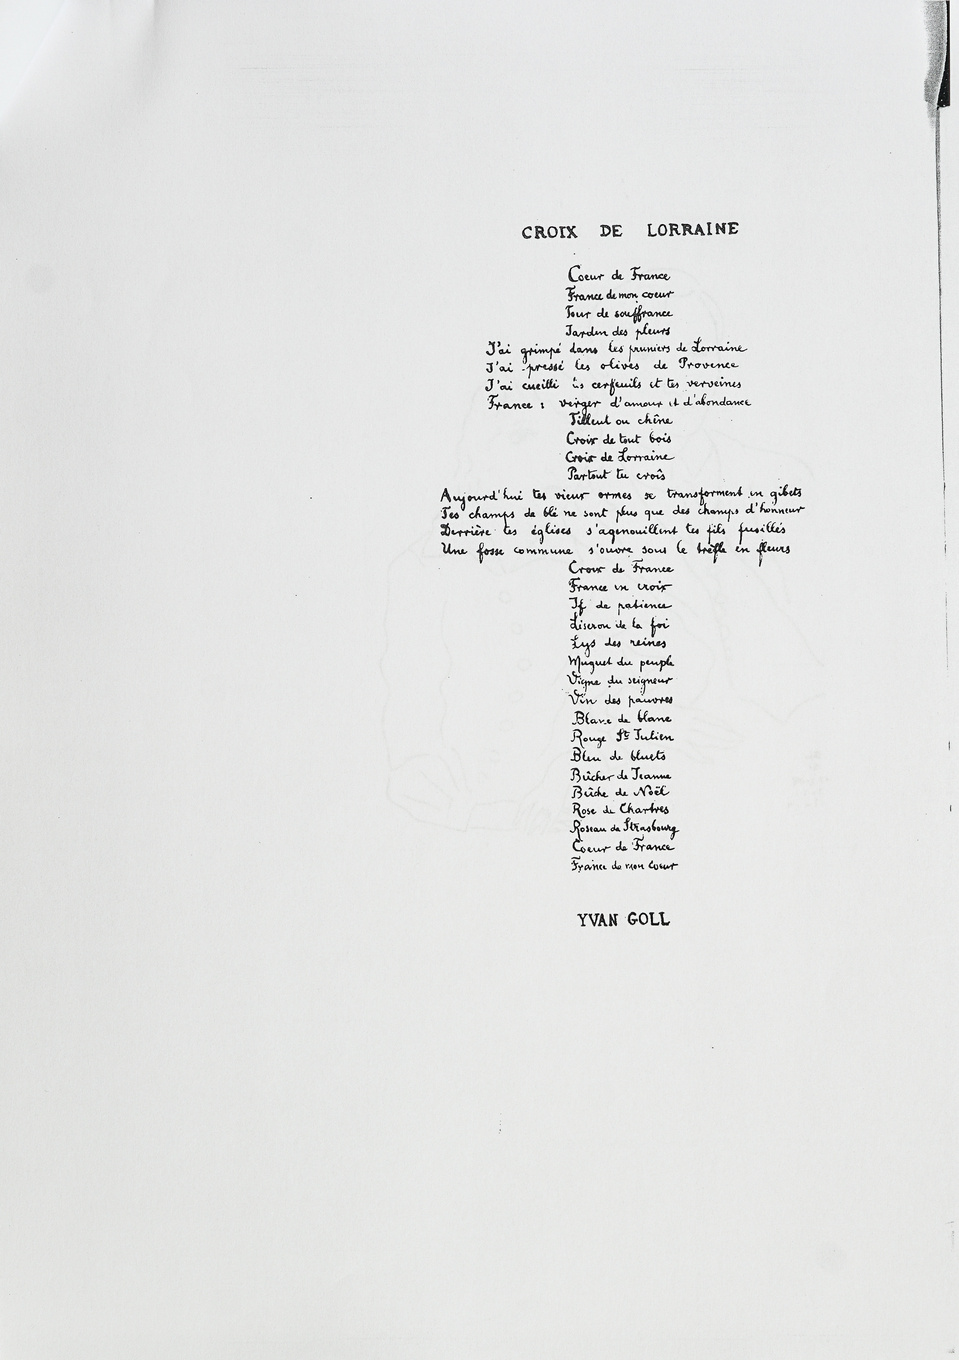 CROIX DE LORRAINE
Coeur de France
France de mon coeur
Tour de souffrance
Jardin des pleurs
J'ai grimpé dans les pruniers de Lorraine
J'ai pressé les olives de Provence
J'ai cueilli tes cerfeuils et tes verveines
France : verger d'amour et d'abondance
Tilleul ou chêne
Croix de tout bois
Croix de Lorraine
Partout tu croîs
Aujourd'hui tes vieux ormes se transforment en gibets
Tes champs de blé ne sont plus que des champs d'honneur
Derrière tes églises s'agenouillent tes fils fusillés
Une fosse commune s'ouvre sous le trèfle en fleurs
Croix de France
France en croix
If de patience
Liseron de la foi
Lys des reines
Muguet du peuple
Vigne du seigneur
Vin des pauvres
Blanc de blanc
Rouge St Julien
Bleu de bluets
Bûcher de Jeanne
Bûche de Noël
Rose de Chartres
Roseau de Strasbourg
Coeur de France
France de mon coeur
YVAN GOLL